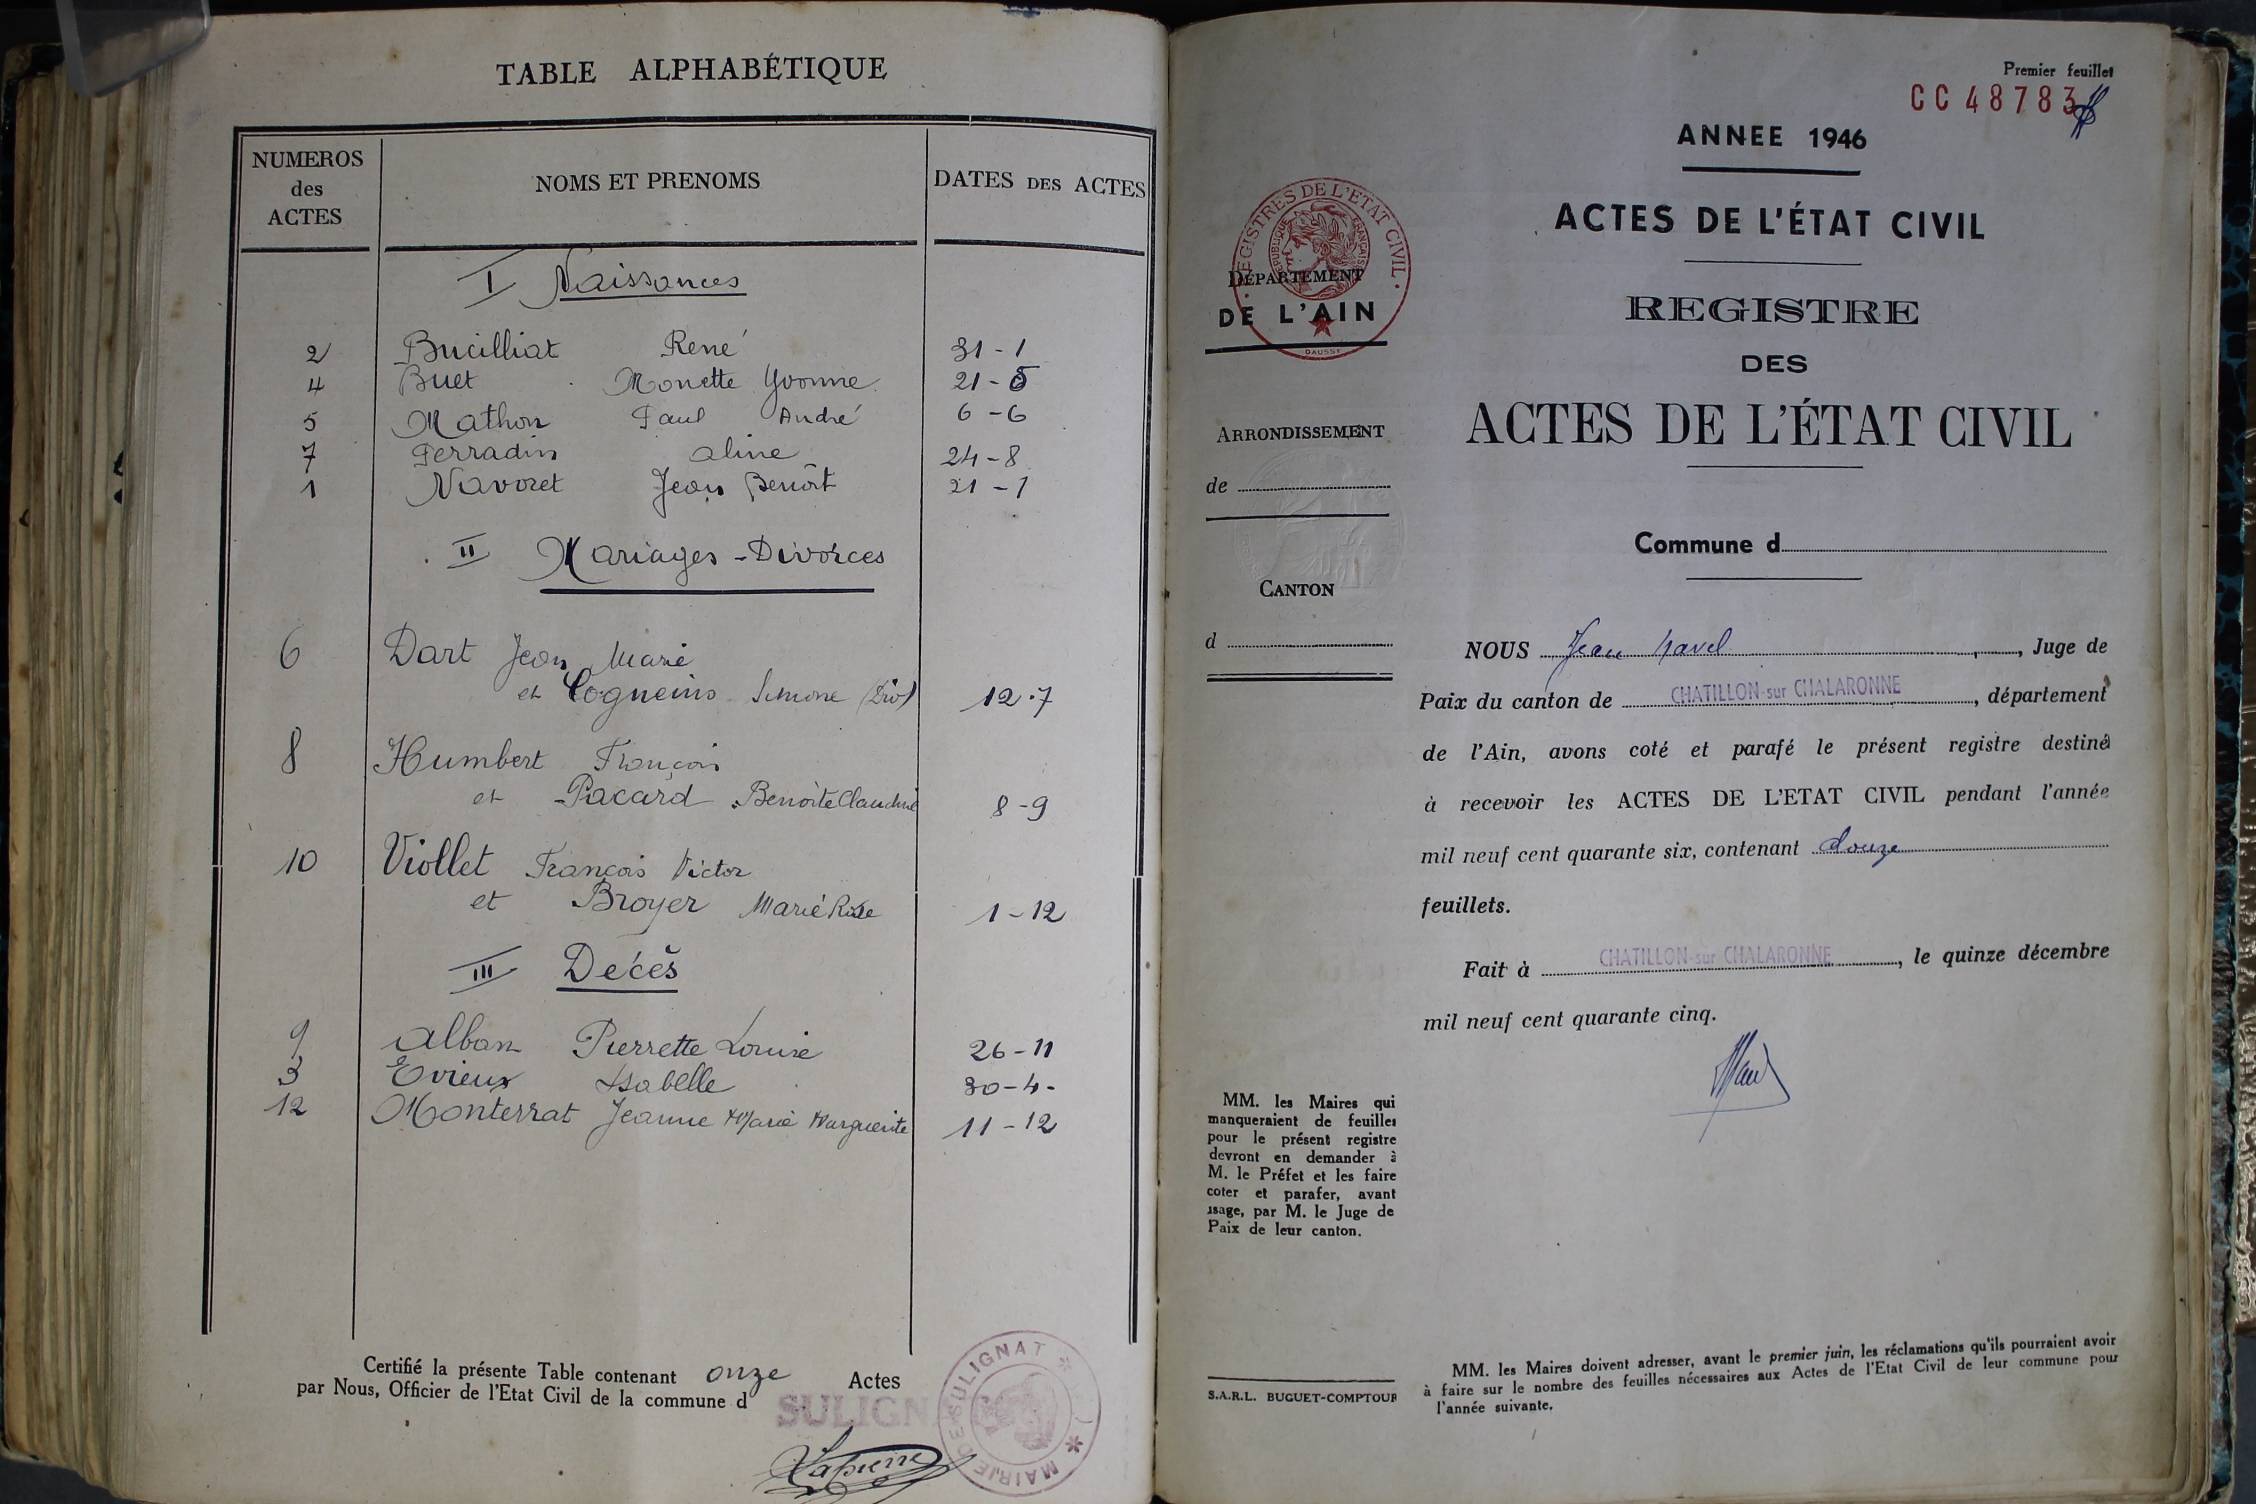 TABLE ALPHABÉTIQUE
NUMEROS des ACTES NOMS ET PRENOMS DATES DES ACTES
I Naissances
2 Bucilliat René 31-1
4 Buet Monette Yvonne 21-5
5 Mathon Paul André 6-6
7 Perradin Aline 24-8
1 Navoret Jean Benoît 21-1
II Mariages-Divorces
6 Dart Jean Marie
et Cogneins Simone (Div) 12.7
8 Humbert François
et Pacard Benoîte Claudine 8-9
10 Viollet François Victor
et Broyer Marie Rose 1-12
III Décès
9 Alban Pierrette Louise 26-11
3 Evieux Isabelle 30-4-
12 Monterrat Jeanne Marie Marguerite 11-12
Certifié la présente Table contenant onze Actes
par Nous, Officier de l'Etat Civil de la commune d SULIGNAT
MAIRIE DE SULIGNAT
Lapierre
Premier feuillet
CC 48783
ANNEE 1946
ACTES DE L'ÉTAT CIVIL
REGISTRE
DES
ACTES DE L'ÉTAT CIVIL
REGISTRES DE L'ETAT CIVIL
REPUBLIQUE FRANÇAISE
DAUSSY
DÉPARTEMENT
DE L'AIN
ARRONDISSEMENT
de
CANTON
d
Commune d
NOUS Jean Navel, Juge de
Paix du canton de CHATILLON-sur CHALARONNE, département
de l'Ain, avons coté et parafé le présent registre destiné
à recevoir les ACTES DE L'ETAT CIVIL pendant l'année
mil neuf cent quarante six, contenant douze
feuillets.
Fait à CHATILLON-sur CHALARONNE, le quinze décembre
mil neuf cent quarante cinq.
MM. les Maires qui
manqueraient de feuilles
pour le présent registre
devront en demander à
M. le Préfet et les faire
coter et parafer, avant
usage, par M. le Juge de
Paix de leur canton.
S.A.R.L. BUGUET-COMPTOUR
MM. les Maires doivent adresser, avant le premier juin, les réclamations qu'ils pourraient avoir
à faire sur le nombre des feuilles nécessaires aux Actes de l'Etat Civil de leur commune pour
l'année suivante.